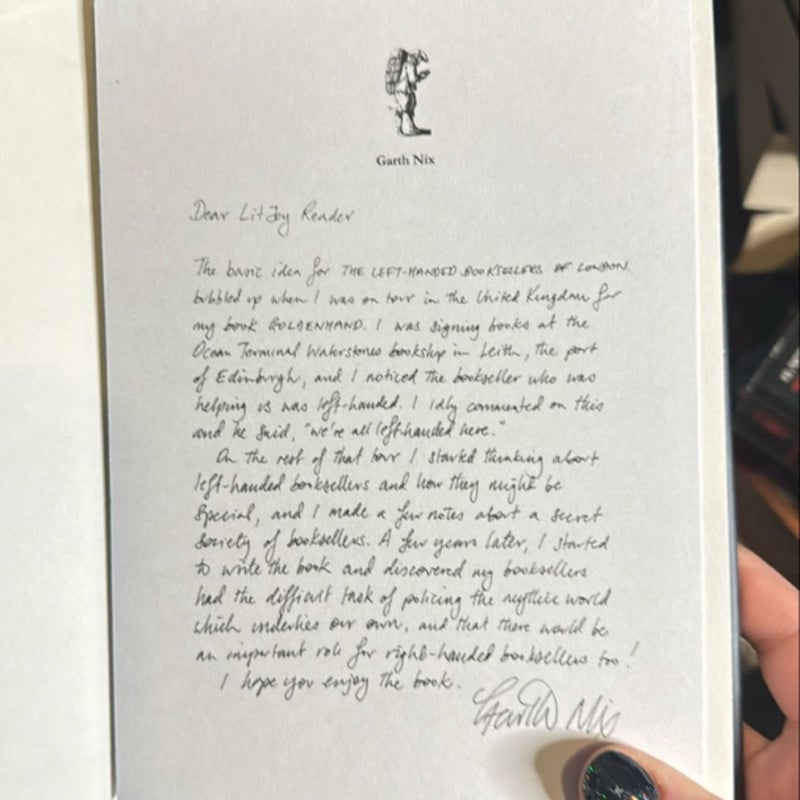 Garth Nix
Dear LitJoy Reader
The basic idea for THE LEFT-HANDED BOOKSELLERS OF LONDON
bubbled up when I was on tour in the United Kingdom for
my book GOLDENHAND. I was signing books at the
Ocean Terminal Waterstones bookshop in Leith, the port
of Edinburgh, and I noticed the bookseller who was
helping us was left-handed. I idly commented on this
and he said, "we're all left-handed here."
On the rest of that tour I started thinking about
left-handed booksellers and how they might be
special, and I made a few notes about a secret
society of booksellers. A few years later, I started
to write the book and discovered my booksellers
had the difficult task of policing the mythic world
which underlies our own, and that there would be
an important role for right-handed booksellers too!
I hope you enjoy the book.
Garth Nix